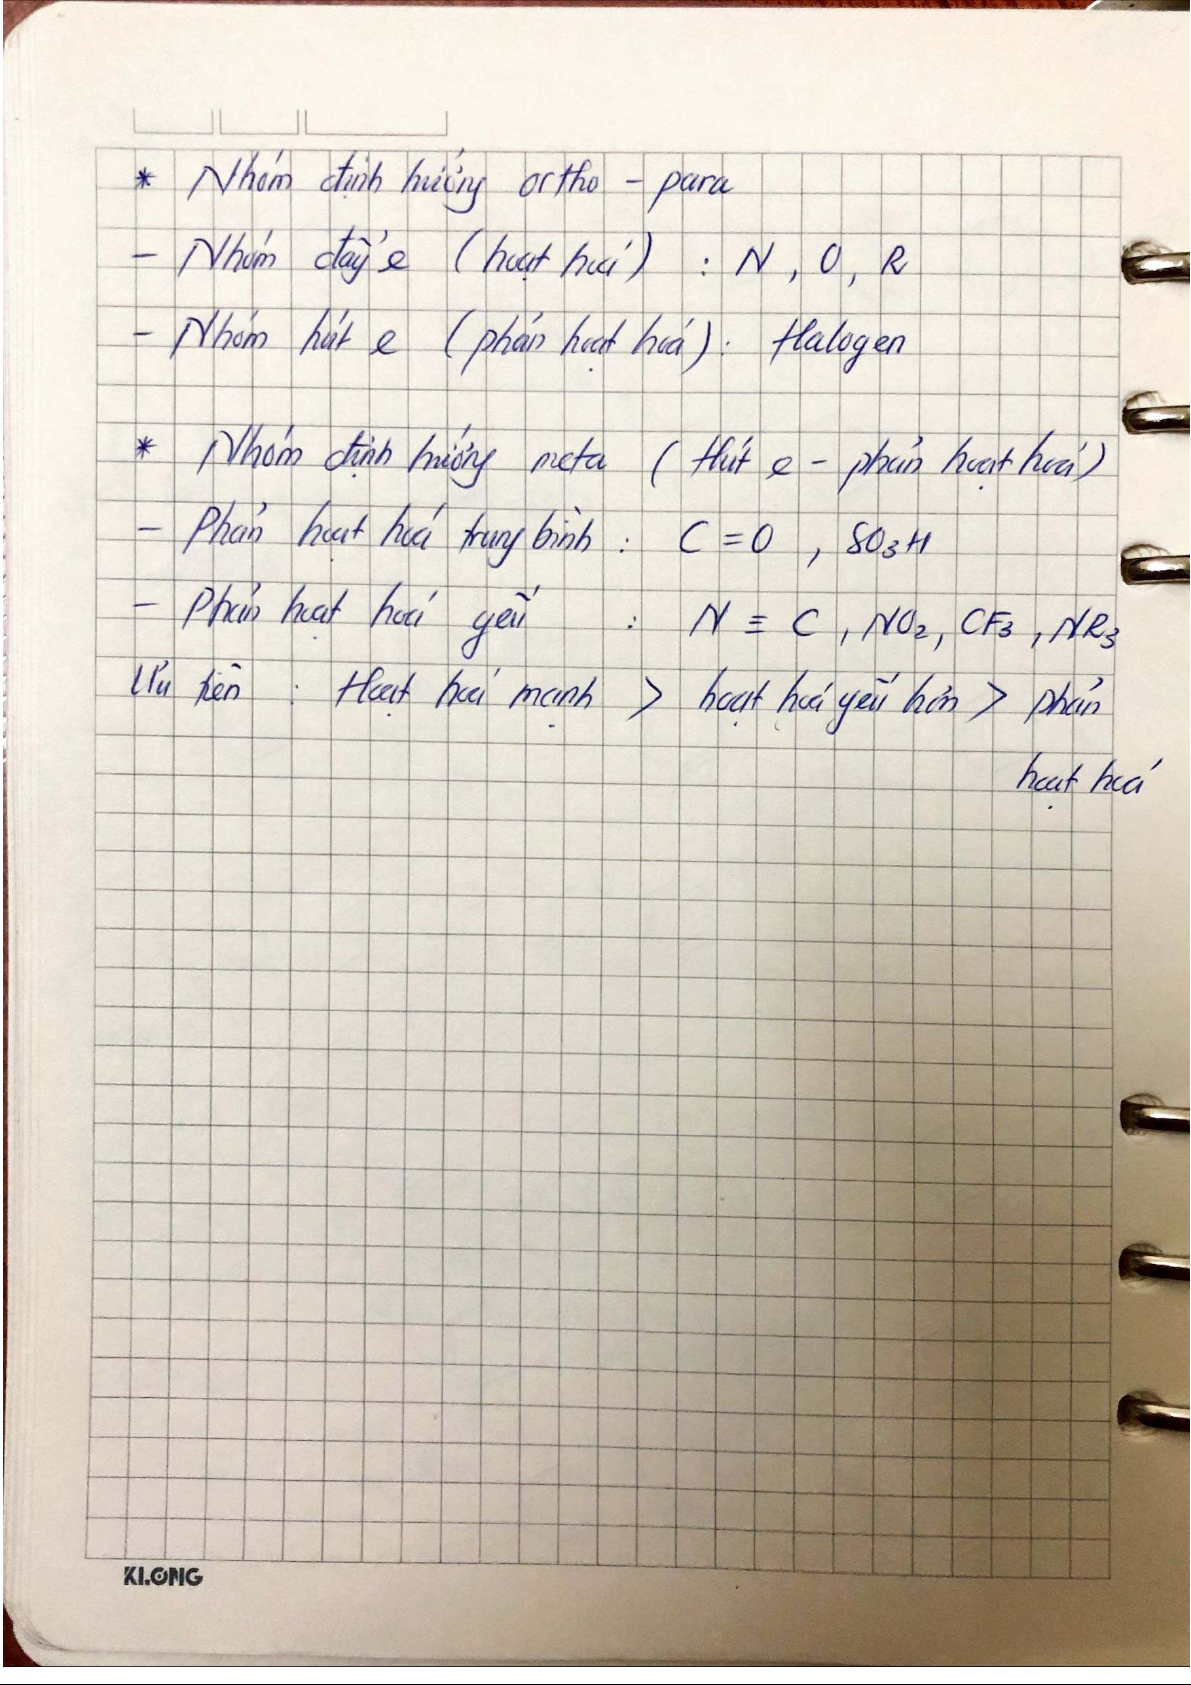 * Nhóm định hướng ortho - para
- Nhóm đẩy e (hoạt hoá) : N , O , R
- Nhóm hút e (phản hoạt hoá) : Halogen
* Nhóm định hướng meta ( Hút e - phản hoạt hoá)
- Phản hoạt hoá trung bình : C = O , SO₃H
- Phản hoạt hoá yếu : N ≡ C , NO₂, CF₃ , NR₃
Ưu tiên : Hoạt hoá mạnh > hoạt hoá yếu hơn > phản
hoạt hoá
KLONG